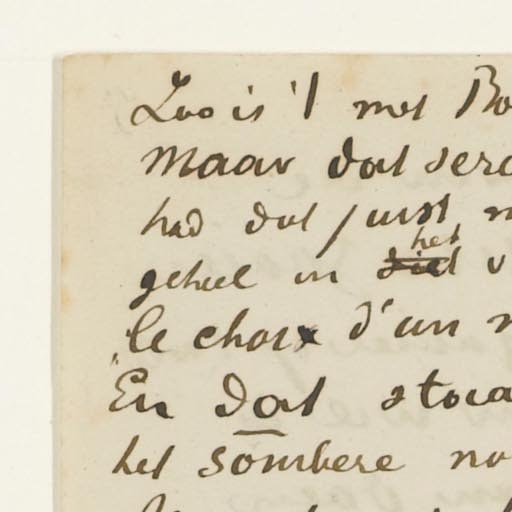 Zoo is 't met Bo
Maar dat sere
had dat juist n
geheel in het v
„le choix d'un n
En dat stoca
het sombere no